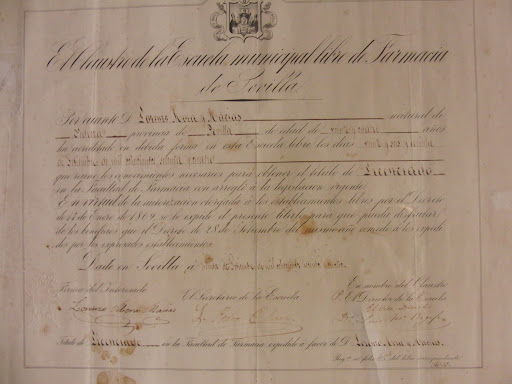 El Claustro de la Escuela municipal libre de Farmacia
de Sevilla
Por cuanto D. Lorenzo Mona y Macías natural de
provincia de Sevilla de edad de veinte y cuatro años
ha acreditado en debida forma en esta Escuela libre los dias veinte y
de mil ochocientos setenta
que reune los conocimientos necesarios para obtener el titulo de Licenciado
en la Facultad de Farmacia con arreglo a la legislacion vigente.
En virtud de la autorizacion otorgada a los establecimientos libres por el Decreto
de 14 de Enero de 1869 se le expide el presente titulo para que pueda disfrutar
de los beneficios que el Decreto de 28 de Setiembre del mismo año concede a los expedi-
dos por los expresados establecimientos.
Dado en Sevilla a de mil ochocientos setenta
Firma del Interesado
El Secretario de la Escuela
En nombre del Claustro
P. El Director de la Escuela
Lorenzo Macías
Titulo de Licenciado en la Facultad de Farmacia expedido a favor de D. Lorenzo Mona y Macías.